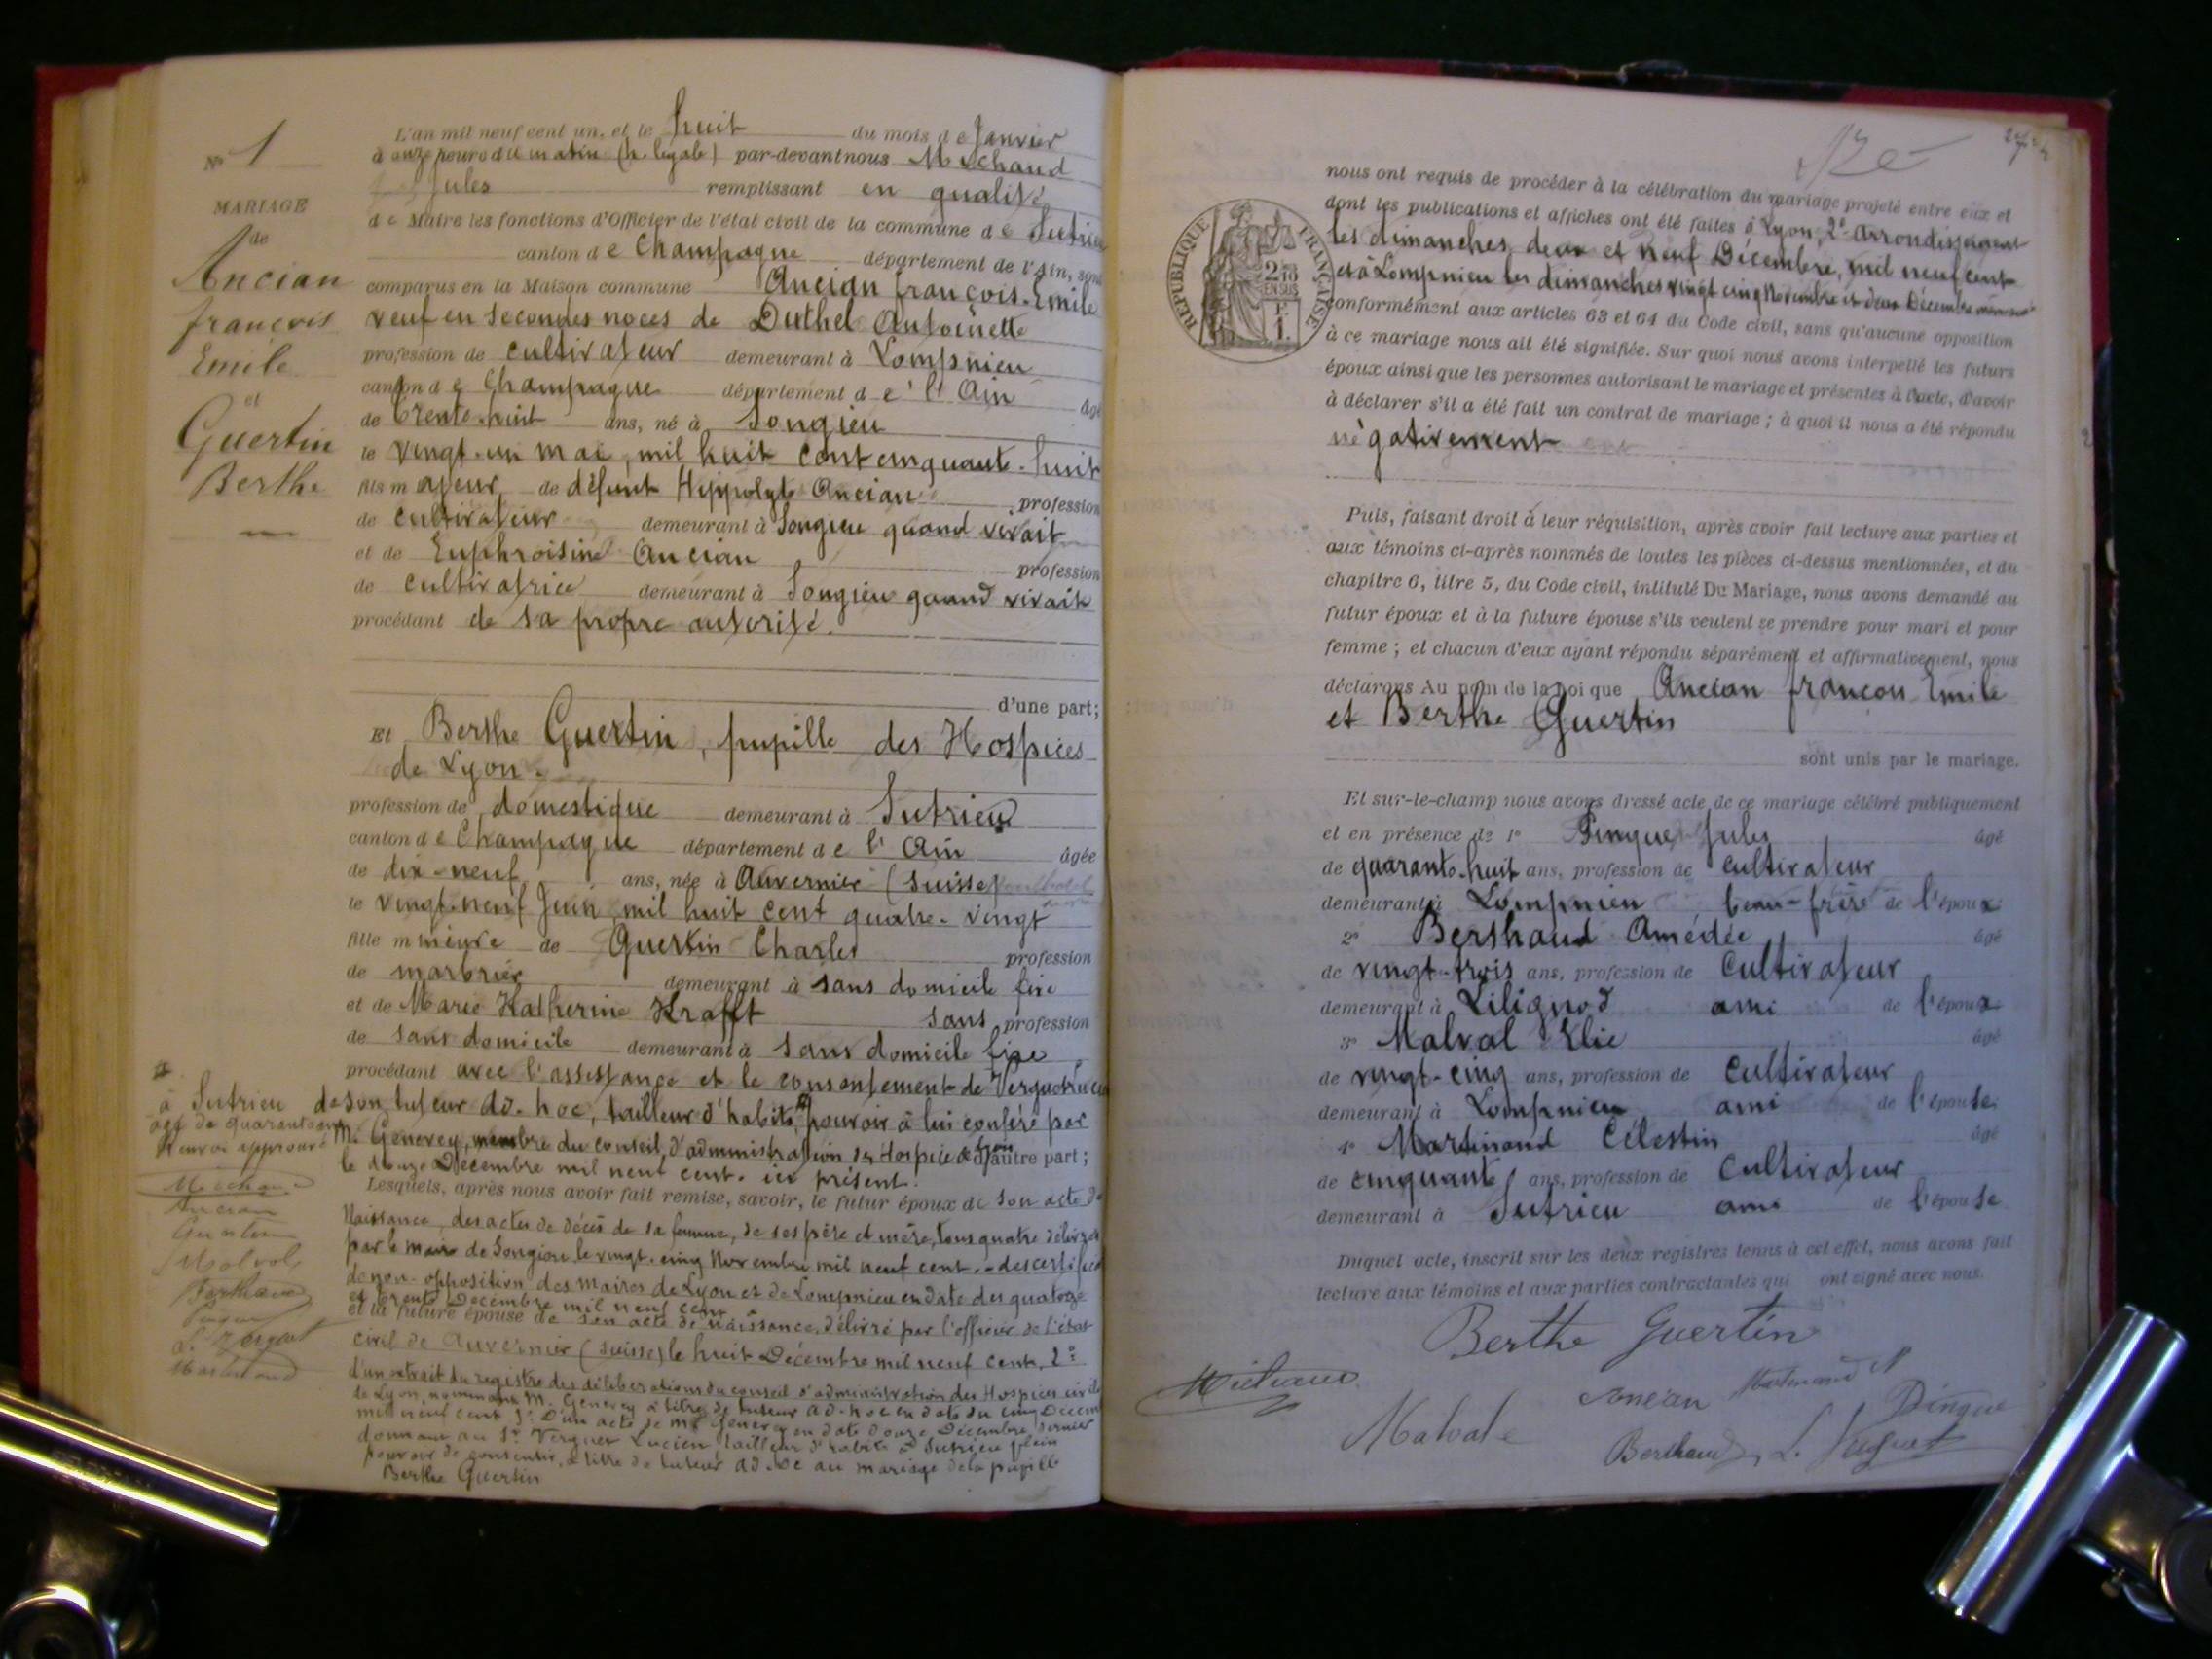 N° 1
MARIAGE
de
Ancian
françois
Emile
et
Guertin
Berthe
L'an mil neuf cent un, et le huit du mois de Janvier
à onze heures du matin (h. légale) par-devant nous Michaud
Jules remplissant en qualité
de Maire les fonctions d'Officier de l'état civil de la commune de Sutrieu
canton de Champagne département de l'Ain, sont
comparus en la Maison commune Ancian françois-Emile
veuf en secondes noces de Duthel Antoinette
profession de cultivateur demeurant à Lompnieu
canton de Champagne département de l'Ain âgé
de trente-huit ans, né à Songieu
le vingt-un mai, mil huit cent cinquante-huit
fils majeur de défunt Hippolyte Ancian profession
de cultivateur demeurant à Songieu quand vivait
et de Euphroisine Ancian profession
de cultivatrice demeurant à Songieu quand vivait
procédant de sa propre autorité.
d'une part;
Et Berthe Guertin, pupille des Hospices
de Lyon.
profession de domestique demeurant à Sutrieu
canton de Champagne département de l'Ain âgée
de dix-neuf ans, née à Auvernier (Suisse)
le vingt-neuf Juin mil huit cent quatre-vingt
fille mineure de Guertin Charles profession
de marbrier demeurant à sans domicile fixe
et de Marie Katherine Krafft sans profession
de sans domicile demeurant à sans domicile fixe
procédant avec l'assistance et le consentement de Verguet Lucien
de son tuteur ad-hoc, tailleur d'habits, pouvoir à lui conféré par
M. Genevey, membre du conseil d'administration des Hospices de Lyon d'autre part;
le douze Décembre mil neuf cent. ici présent.
à Sutrieu
âgé de quarante ans
Renvoi approuvé
Michaud
Ancian
Guertin
Malval
Berthaud
Pingue
L. Verguet
Martinand
Lesquels, après nous avoir fait remise, savoir, le futur époux de son acte de
Naissance, des actes de décès de sa femme, de ses père et mère, tous quatre délivrés
par le maire de Songieu le vingt-cinq Novembre mil neuf cent. - des certificats
de non-opposition des maires de Lyon et de Lompnieu en date des quatorze
et trente Décembre mil neuf cent
et la future épouse de son acte de naissance, délivré par l'officier de l'état
civil de Auvernier (Suisse) le huit Décembre mil neuf cent, 2°
d'un extrait du registre des délibérations du conseil d'administration des Hospices civils
de Lyon, nommant M. Genevey à titre de tuteur ad-hoc en date du cinq Décembre
mil neuf cent 3° D'un acte de Mr Genevey en date douze Décembre dernier
donnant au Sr Verguet Lucien tailleur d'habits à Sutrieu plein
pouvoir de consentir, à titre de tuteur ad-hoc au mariage de la pupille
Berthe Guertin
nous ont requis de procéder à la célébration du mariage projeté entre eux et
dont les publications et affiches ont été faites à Lyon, 2e Arrondissement
les dimanches, deux et neuf Décembre, mil neuf cent
et à Lompnieu les dimanches vingt cinq Novembre et deux Décembre
conformément aux articles 63 et 64 du Code civil, sans qu'aucune opposition
à ce mariage nous ait été signifiée. Sur quoi nous avons interpellé les futurs
époux ainsi que les personnes autorisant le mariage et présentes à l'acte, d'avoir
à déclarer s'il a été fait un contrat de mariage; à quoi il nous a été répondu
négativement
RÉPUBLIQUE FRANÇAISE
2/10 EN SUS
1 F.
Puis, faisant droit à leur réquisition, après avoir fait lecture aux parties et
aux témoins ci-après nommés de toutes les pièces ci-dessus mentionnées, et du
chapitre 6, titre 5, du Code civil, intitulé Du Mariage, nous avons demandé au
futur époux et à la future épouse s'ils veulent se prendre pour mari et pour
femme; et chacun d'eux ayant répondu séparément et affirmativement, nous
déclarons Au nom de la loi que Ancian françois Emile
et Berthe Guertin
sont unis par le mariage.
Et sur-le-champ nous avons dressé acte de ce mariage célébré publiquement
et en présence de 1° Pingue Jules âgé
de quarante-huit ans, profession de cultivateur
demeurant à Lompnieu beau-frère de l'époux
2° Berthaud Amédée âgé
de vingt-trois ans, profession de cultivateur
demeurant à Lilignod ami de l'époux
3° Malval Elie âgé
de vingt-cinq ans, profession de cultivateur
demeurant à Lompnieu ami de l'épouse
4° Martinand Célestin âgé
de cinquante ans, profession de cultivateur
demeurant à Sutrieu ami de l'épouse
Duquel acte, inscrit sur les deux registres tenus à cet effet, nous avons fait
lecture aux témoins et aux parties contractantes qui ont signé avec nous.
Berthe Guertin
Michaud
Ancian Martinand
Malval e Pingue
Berthaud L. Verguet